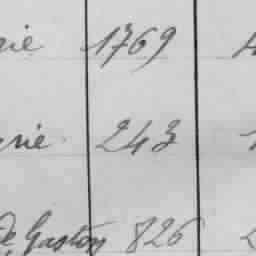 rie 1769
rie 243
de Gaston 826